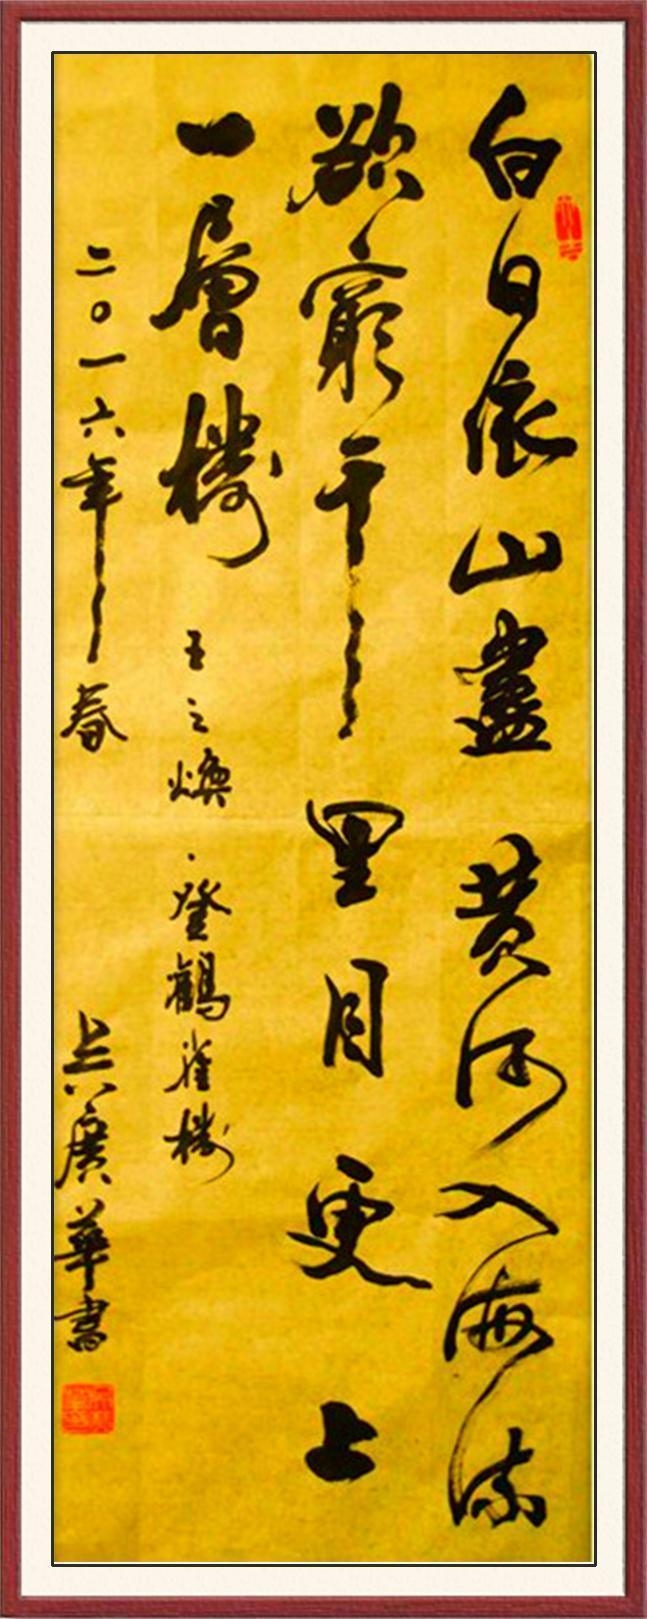 白日依山盡黄河入海流
欲窮千里目更上
一層樓 王之煥·登鸛雀樓
二0一六年春 吴廣華書